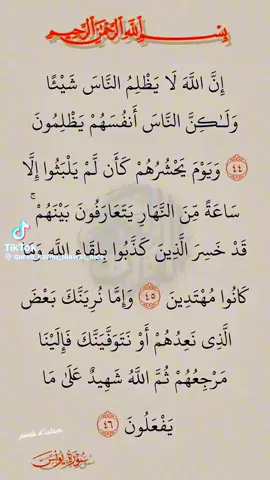 بِسْمِ اللَّهِ الرَّحْمَٰنِ الرَّحِيمِ
إِنَّ اللَّهَ لَا يَظْلِمُ النَّاسَ شَيْئًا
وَلَـٰكِنَّ النَّاسَ أَنفُسَهُمْ يَظْلِمُونَ
٤٤ وَيَوْمَ يَحْشُرُهُمْ كَأَن لَّمْ يَلْبَثُوا إِلَّا
سَاعَةً مِّنَ النَّهَارِ يَتَعَارَفُونَ بَيْنَهُمْ ۚ
قَدْ خَسِرَ الَّذِينَ كَذَّبُوا بِلِقَاءِ اللَّهِ وَمَا
كَانُوا مُهْتَدِينَ ٤٥ وَإِمَّا نُرِيَنَّكَ بَعْضَ
الَّذِي نَعِدُهُمْ أَوْ نَتَوَفَّيَنَّكَ فَإِلَيْنَا
مَرْجِعُهُمْ ثُمَّ اللَّهُ شَهِيدٌ عَلَىٰ مَا
يَفْعَلُونَ ٤٦
TikTok
سورة يونس